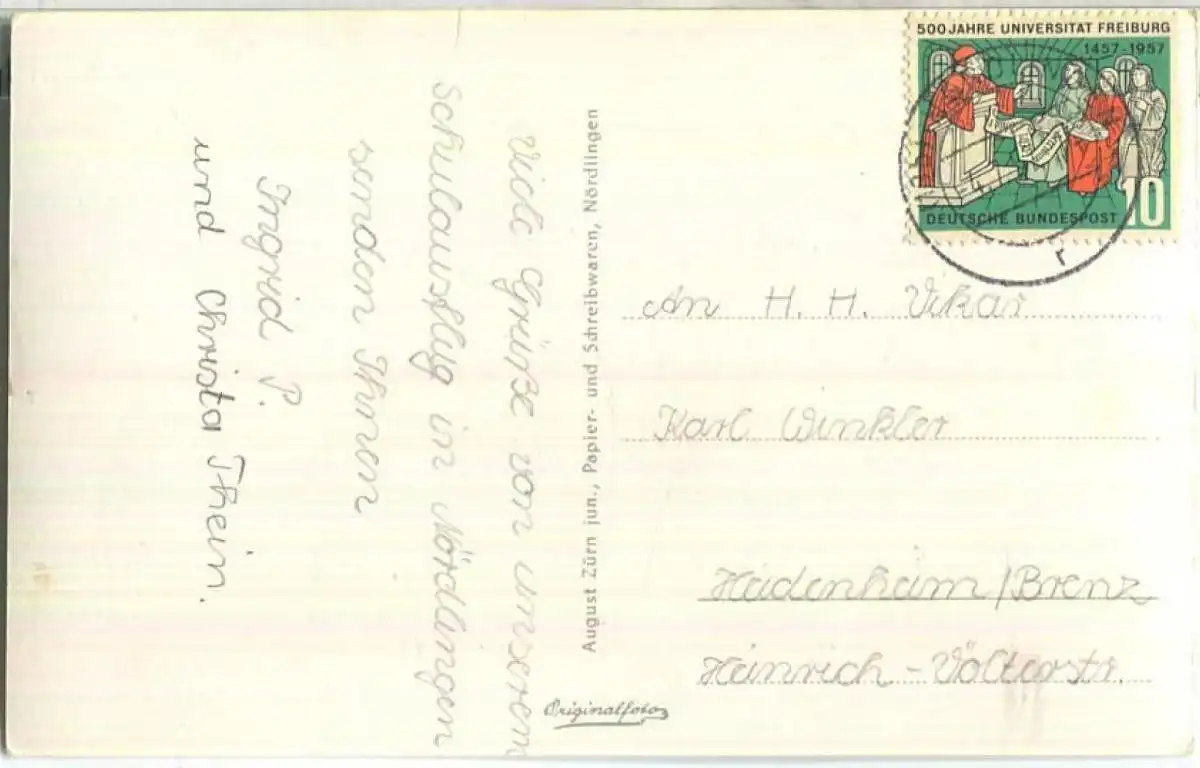 500 JAHRE UNIVERSITÄT FREIBURG
1457-1957
DEUTSCHE BUNDESPOST
10
r
Viele Grüße von unserem
Schulausflug in Nördlingen
senden Ihnen
Ingrid P.
und Christa Thein.
August Zürn jun., Papier- und Schreibwaren, Nördlingen
Originalfoto
An H. H. Vikar
Karl Winkler
Heidenheim/Brenz
Heinrich-Völterstr.